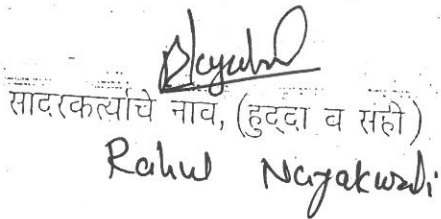 सादरकर्त्याचे नाव, (हुद्दा व सही)
Rahul Nayakwadi